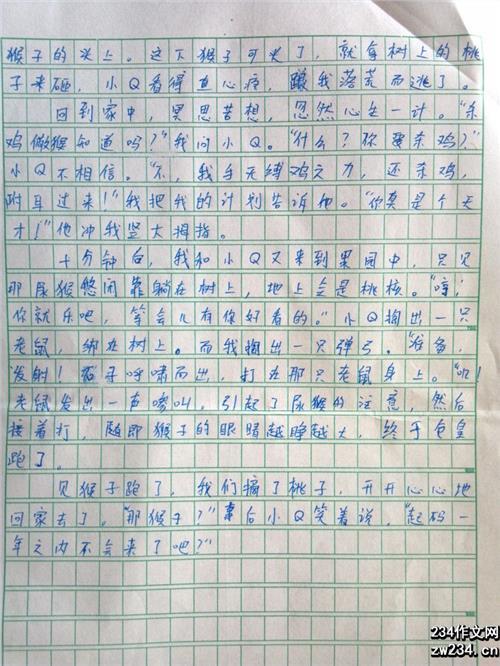 猴子的头上。这下猴子可火了，就拿树上的桃
子来砸，小Q看得直心疼，跟我落荒而逃了。
回到家中，冥思苦想，忽然心生一计。“杀
鸡儆猴知道吗？”我问小Q。“什么？你要杀鸡？”
小Q不相信。“不，我手无缚鸡之力，还杀鸡，
附耳过来！”我把我的计划告诉他。“你真是个天
才！”他冲我竖大拇指。
十分钟后，我和小Q又来到果园中，只见
那尿猴悠闲靠躺在树上，地上全是桃核。“哼！
你就乐吧，等会儿有你好看的。”小Q掏出一只
老鼠，绑在树上。而我掏出一只弹弓。“准备，
发射！石子呼啸而出，打在那只老鼠身上。“叽！
老鼠发出一声惨叫，引起了尿猴的注意，然后
接着打，随即猴子的眼睛越睁越大，终于仓皇
跑了。
见猴子跑了，我们摘了桃子，开开心心地
回家去了。“那猴子？”事后小Q笑着说，“起码一
年之内不会来了吧？”
234作文网
zw234.cn